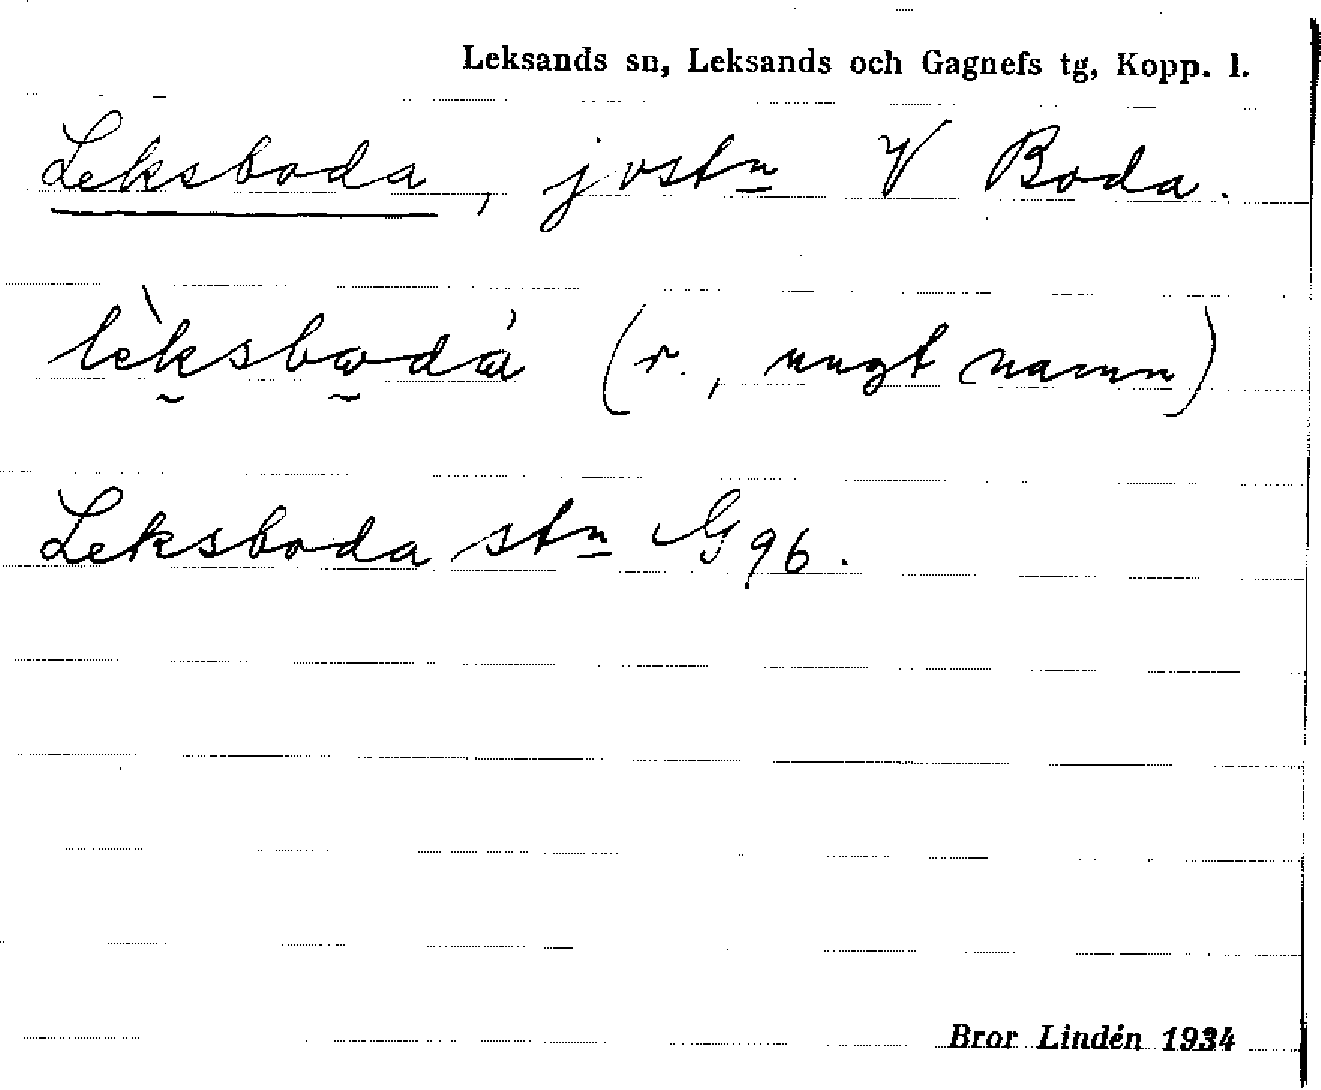 Leksands sn, Leksands och Gagnefs tg, Kopp. l.
Leksboda, jvstn V Boda.
lèksbodà (r., ungt namn)
Leksboda stn G 96.
Bror Lindén 1934